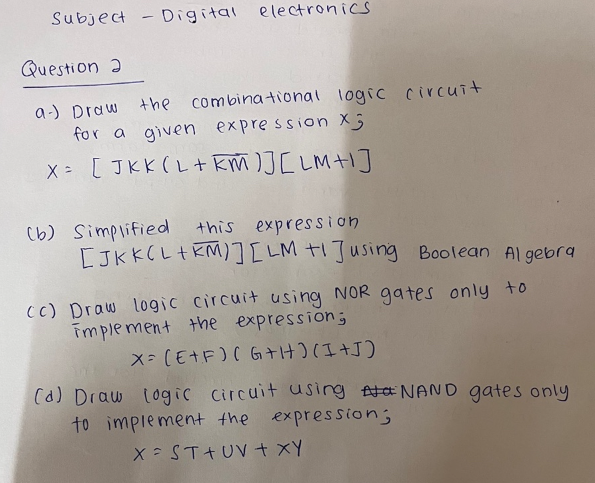 Subject - Digital electronics
Question 2
a-) Draw the combinational logic circuit
for a given expression X;
X = [ JKK(L + K̅M̅)][LM+1]
(b) Simplified this expression
[JKK(L + K̅M̅)][LM +1] using Boolean Algebra
(c) Draw logic circuit using NOR gates only to
implement the expression;
X = (E+F)(G+H)(I+J)
(d) Draw logic circuit using NAND gates only
to implement the expression;
X = ST + UV + XY